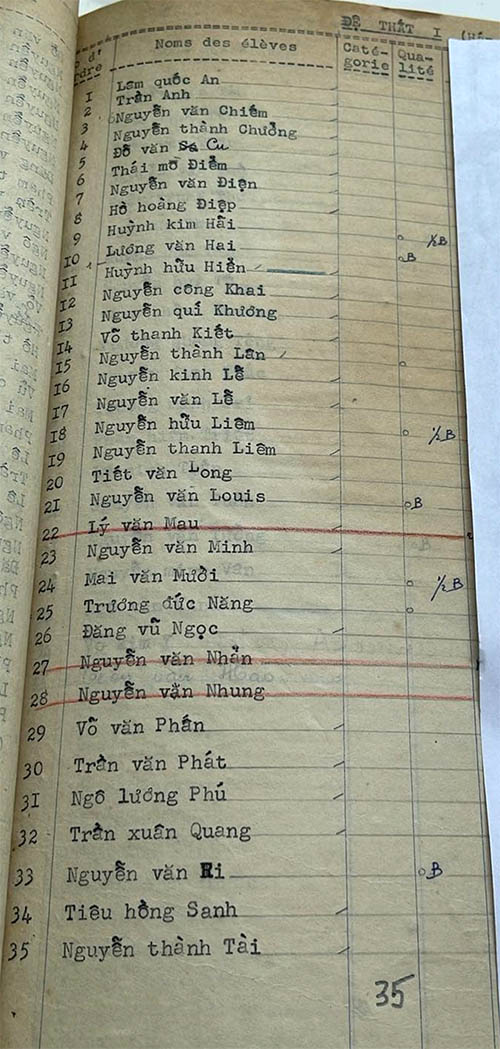 ĐỆ THẤT I
Noms des élèves
Caté-
gorie
Qua-
lité
1 Lâm quốc An
2 Trần Anh
3 Nguyễn văn Chiếm
4 Nguyễn thành Chưởng
5 Đỗ văn Cu
6 Thái mô Điểm
7 Nguyễn văn Điện
8 Hồ hoàng Điệp
9 Huỳnh kim Hải ½B
10 Lương văn Hai B
11 Huỳnh hữu Hiền
12 Nguyễn công Khai
13 Nguyễn quí Khương
14 Võ thanh Kiết
15 Nguyễn thành Lân
16 Nguyễn kinh Lễ
17 Nguyễn văn Lễ
18 Nguyễn hữu Liêm ½B
19 Nguyễn thanh Liêm
20 Tiết văn Long
21 Nguyễn văn Louis B
22 Lý văn Mau
23 Nguyễn văn Minh
24 Mai văn Mười ½B
25 Trương đức Năng
26 Đăng vũ Ngọc
27 Nguyễn văn Nhẫn
28 Nguyễn văn Nhung
29 Võ văn Phấn
30 Trần văn Phát
31 Ngô lương Phú
32 Trần xuân Quang
33 Nguyễn văn Ri B
34 Tiêu hồng Sanh
35 Nguyễn thành Tài
35